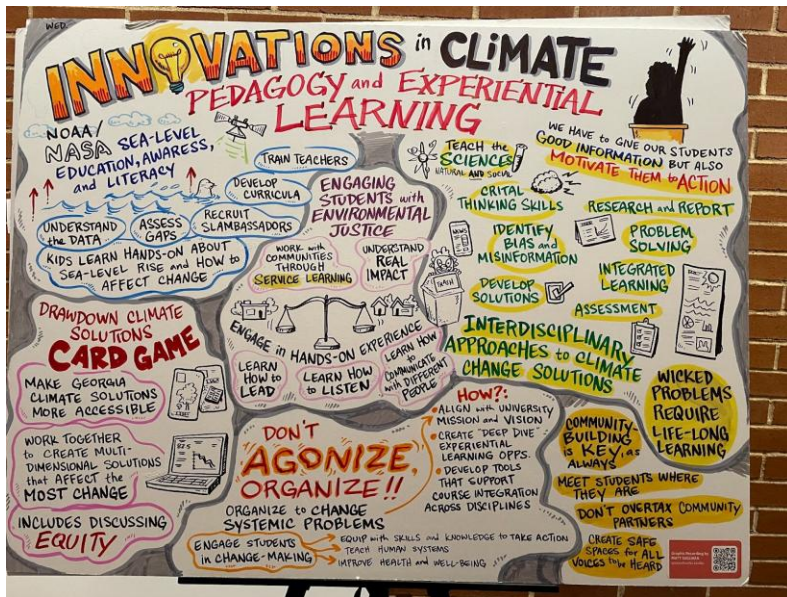 WED.
INNOVATIONS in CLIMATE
PEDAGOGY and EXPERIENTIAL
LEARNING
NOAA/
NASA SEA-LEVEL
EDUCATION, AWARESS,
and LITERACY
TRAIN TEACHERS
DEVELOP
CURRICULA
UNDERSTAND
the DATA
ASSESS
GAPS
RECRUIT
SLAMBASSADORS
KIDS LEARN HANDS-ON ABOUT
SEA-LEVEL RISE and HOW to
AFFECT CHANGE
ENGAGING
STUDENTS with
ENVIRONMENTAL
JUSTICE
WORK with
COMMUNITIES
THROUGH
SERVICE LEARNING
UNDERSTAND
REAL
IMPACT
ENGAGE in HANDS-ON EXPERIENCE
LEARN
HOW to
LEAD
LEARN HOW
to LISTEN
LEARN HOW
to
COMMUNICATE
with DIFFERENT
PEOPLE
TEACH the
SCIENCES
NATURAL AND SOCIAL
CRITAL
THINKING SKILLS
NEWS
IDENTIFY
BIAS and
MISINFORMATION
DEVELOP
SOLUTIONS
WE HAVE to GIVE OUR STUDENTS
GOOD INFORMATION BUT ALSO
MOTIVATE THEM to ACTION
RESEARCH and REPORT
PROBLEM
SOLVING
INTEGRATED
LEARNING
ASSESSMENT
INTERDISCIPLINARY
APPROACHES to CLIMATE
CHANGE SOLUTIONS
WICKED
PROBLEMS
REQUIRE
LIFE-LONG
LEARNING
DRAWDOWN CLIMATE
SOLUTIONS
CARD GAME
MAKE GEORGIA
CLIMATE SOLUTIONS
MORE ACCESSIBLE
WORK TOGETHER
to CREATE MULTI-
DIMENSIONAL SOLUTIONS
that AFFECT the
MOST CHANGE
INCLUDES DISCUSSING
EQUITY
DON'T
AGONIZE,
ORGANIZE!!
ORGANIZE to CHANGE
SYSTEMIC PROBLEMS
ENGAGE STUDENTS
in CHANGE-MAKING
EQUIP with SKILLS and KNOWLEDGE to TAKE ACTION
TEACH HUMAN SYSTEMS
IMPROVE HEALTH and WELL-BEING
HOW?:
• ALIGN with UNIVERSITY
MISSION and VISION
• CREATE "DEEP DIVE"
EXPERIENTIAL
LEARNING OPPS.
• DEVELOP TOOLS
THAT SUPPORT
COURSE INTEGRATION
ACROSS DISCIPLINES
COMMUNITY-
BUILDING
is KEY, as
ALWAYS
MEET STUDENTS WHERE
THEY ARE
DON'T OVERTAX COMMUNITY
PARTNERS
CREATE SAFE
SPACES for ALL
VOICES to be HEARD